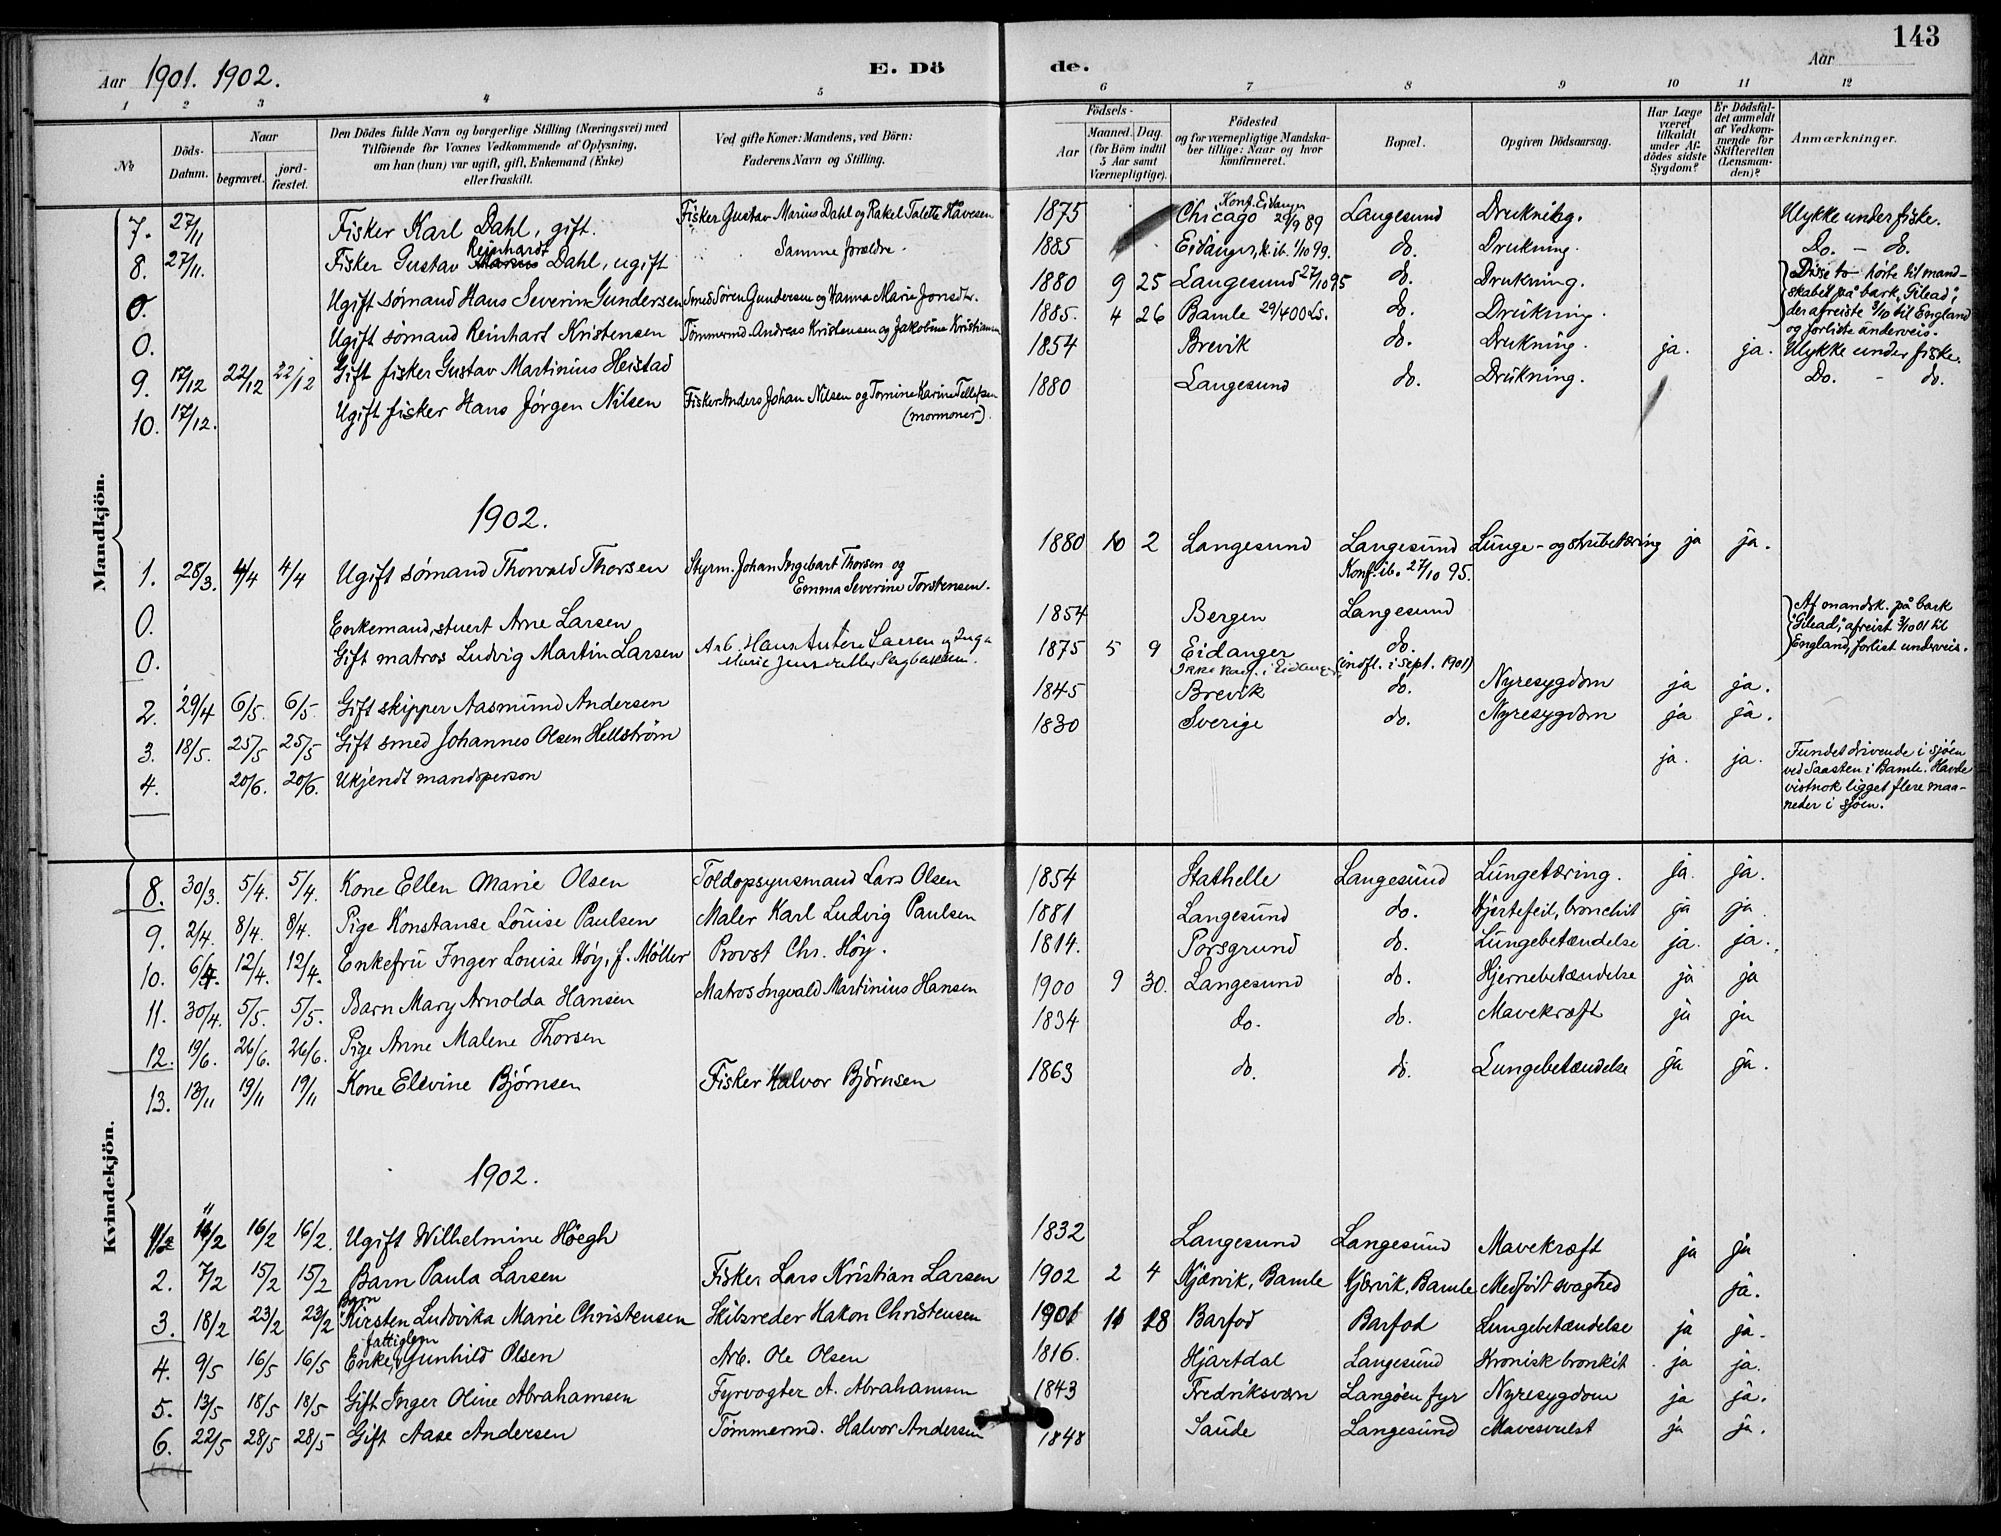 143
Aar 1901. 1902. E. Dö de. Aar
1 2 3 4 5 6 7 8 9 10 11 12
No
Döds-Datum.
Naar
begravet.
jordfæstet.
Den Dödes fulde Navn og borgerlige Stilling (Næringsvei) med
Tilföiende for Voxnes Vedkommende af Oplysning,
om han (hun) var ugift, gift, Enkemand (Enke)
eller fraskilt.
Ved gifte Koner: Mandens, ved Börn:
Faderens Navn og Stilling.
Födsels-
Aar
Maaned. Dag.
(for Börn indtil
5 Aar samt
Værnepligtige).
Födested
og for værnepligtige Mandskaber tillige: Naar og hvor
konfirmeret.
Bopæl.
Opgiven Dödsaarsag.
Har Læge
været
tilkaldt
under Afdödes sidste
Sygdom?
Er Dödsfaldet anmeldt
af Vedkommende for
Skifteretten
(Lensmanden)?
Anmærkninger.
Mandkjön.
7. 27/11 Fisker Karl Dahl, gift. Fisker Gustav Marius Dahl og Rakel Talette Håvesen 1875 Chicago Konf. Eidanger 29/9 89 Langesund Drukning. Ulykke under fiske.
8. 27/11. Fisker Gustav Reinhardt Dahl, ugift Samme forældre. 1885 Eidanger, k. ib. 1/10 99. do. Drukning. Do. - do.
0. Ugift sømand Hans Severin Gundersen Smed Søren Gundersen og Hanna Marie Jonsdtr. 1880 9 25 Langesund 27/10 95 do. Drukning. Disse to hørte til mandskabet på bark „Gilead“,
0. Ugift sømand Reinhart Kristensen Tømmermd. Andreas Kristensen og Jakobine Kristiansen 1885. 4 26 Bamle 29/4 00 Ls. do. Drukning. der afreiste 3/10 til England
og forliste underveis.
9. 17/12 22/12 22/12 Gift fisker Gustav Martinius Heistad 1854 Brevik do. Drukning. ja. ja. Ulykke under fiske.
10. 17/12. Ugift fisker Hans Jørgen Nilsen Fisker Anders Johan Nilsen og Tomine Karine Tellefsen
(mormoner). 1880 Langesund do. Drukning. Do. - do.
1902.
1. 28/3. 4/4 4/4 Ugift sømand Thorvald Thorsen Styrm. Johan Ingebart Thorsen og
Emma Severine Torstensen. 1880 10 2 Langesund Langesund Lunge- og strubetæring ja ja.
Konf. ib. 27/10 95.
0. Enkemand, stuert Arne Larsen 1854 Bergen Langesund Af mandsk. på bark
0. Gift matros Ludvig Martin Larsen Arb. Hans Larsen og Inga
Marie 1875 5 9 Eidanger do. „Gilead“, afreist 3/10 01 til
Ikke konf. i Eidanger (indfl. i sept. 1901) England, forlist underveis.
2. 29/4 6/5. 6/5. Gift skipper Aasmund Andersen 1845 Brevik do. Nyresygdom ja ja.
3. 18/5. 25/5 25/5 Gift smed Johannes Olsen Hellström 1830 Sverige do. Nyresygdom ja ja.
4. 20/6. 20/6. Ukjendt mandsperson ja. ja. Fundet drivende i sjøen
ved Saasten i Bamle. Havde
vistnok ligget flere maaneder i sjøen.
Kvindekjön.
8. 30/3. 5/4. 5/4. Kone Ellen Marie Olsen Toldopsynsmand Lars Olsen 1854 Stathelle Langesund Lungetæring. ja. ja.
9. 2/4. 8/4. 8/4. Pige Konstanse Louise Paulsen Maler Karl Ludvig Paulsen 1881 Langesund do. Hjertefeil, bronchit ja ja
10. 6/4. 12/4. 12/4. Enkefru Inger Louise Høy, f. Møller Provst Chr. Høy. 1814. Porsgrund do. Lungebetændelse ja. ja.
11. 30/4. 5/5. 5/5. Barn Mary Arnolda Hansen Matros Ingvald Martinius Hansen 1900 9 30. Langesund do. Hjernebetændelse ja ja
12. 19/6. 26/6. 26/6. Pige Anne Malene Thorsen 1834 do. do. Mavekræft ja ja
13. 13/11 19/11 19/11 Kone Elevine Bjørnsen Fisker Halvor Bjørnsen 1863 do. do. Lungebetændelse ja ja.
1902.
1. 11/2 16/2 16/2. Ugift Wilhelmine Høegh 1832 Langesund Langesund Mavekræft ja ja
2. 7/2 15/2 15/2 Barn Paula Larsen Fisker Lars Kristian Larsen 1902 2 4 Kjørvik, Bamle Kjørvik, Bamle Medfødt svaghed ja.
3. 18/2 23/2 23/2 Barn Kirsten Ludovika Marie Christensen Skibsreder Hakon Christensen 1901 11 18 Barfod Barfod Lungebetændelse ja ja.
4. 9/5 16/5 16/5 Enke, fattiglem Gunhild Olsen Arb. Ole Olsen 1816. Hjartdal Langesund Kronisk bronkit ja ja.
5. 13/5 18/5 18/5 Gift Inger Oline Abrahamsen Fyrvogter A. Abrahamsen 1843 Fredriksværn Langøen fyr Nyresygdom ja ja.
6. 22/5 28/5 28/5 Gift Aase Andersen Tømmermd. Halvor Andersen 1848 Saude Langesund Mavesvulst ja ja.